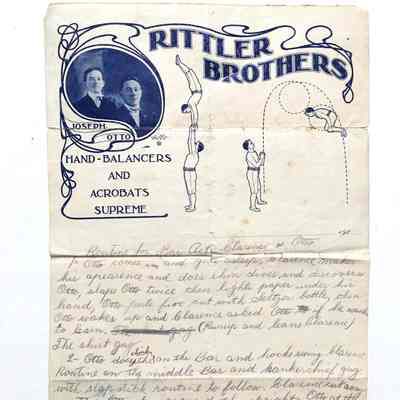 RITTLER
BROTHERS
JOSEPH.
OTTO
HAND-BALANCERS
AND
ACROBATS
SUPREME
Routine for Bar Act. Clarence & Otto
1- Otto comes on and gets asleep, Clarence makes
his apearence and does shin dives and discovers
Otto, slaps Otto twice then lights paper under his
hand, Otto puts fire out with seltzer bottle, then
Otto wakes up and Clarence asked Otto if he wants
to learn. (Runup and leans Clarence)
The shirt gag.
2- Otto does on the Bar and hocks swing Clarence
Routine on the middle Bar and hankerchief gag
with slapstick routine to follow. Clarence